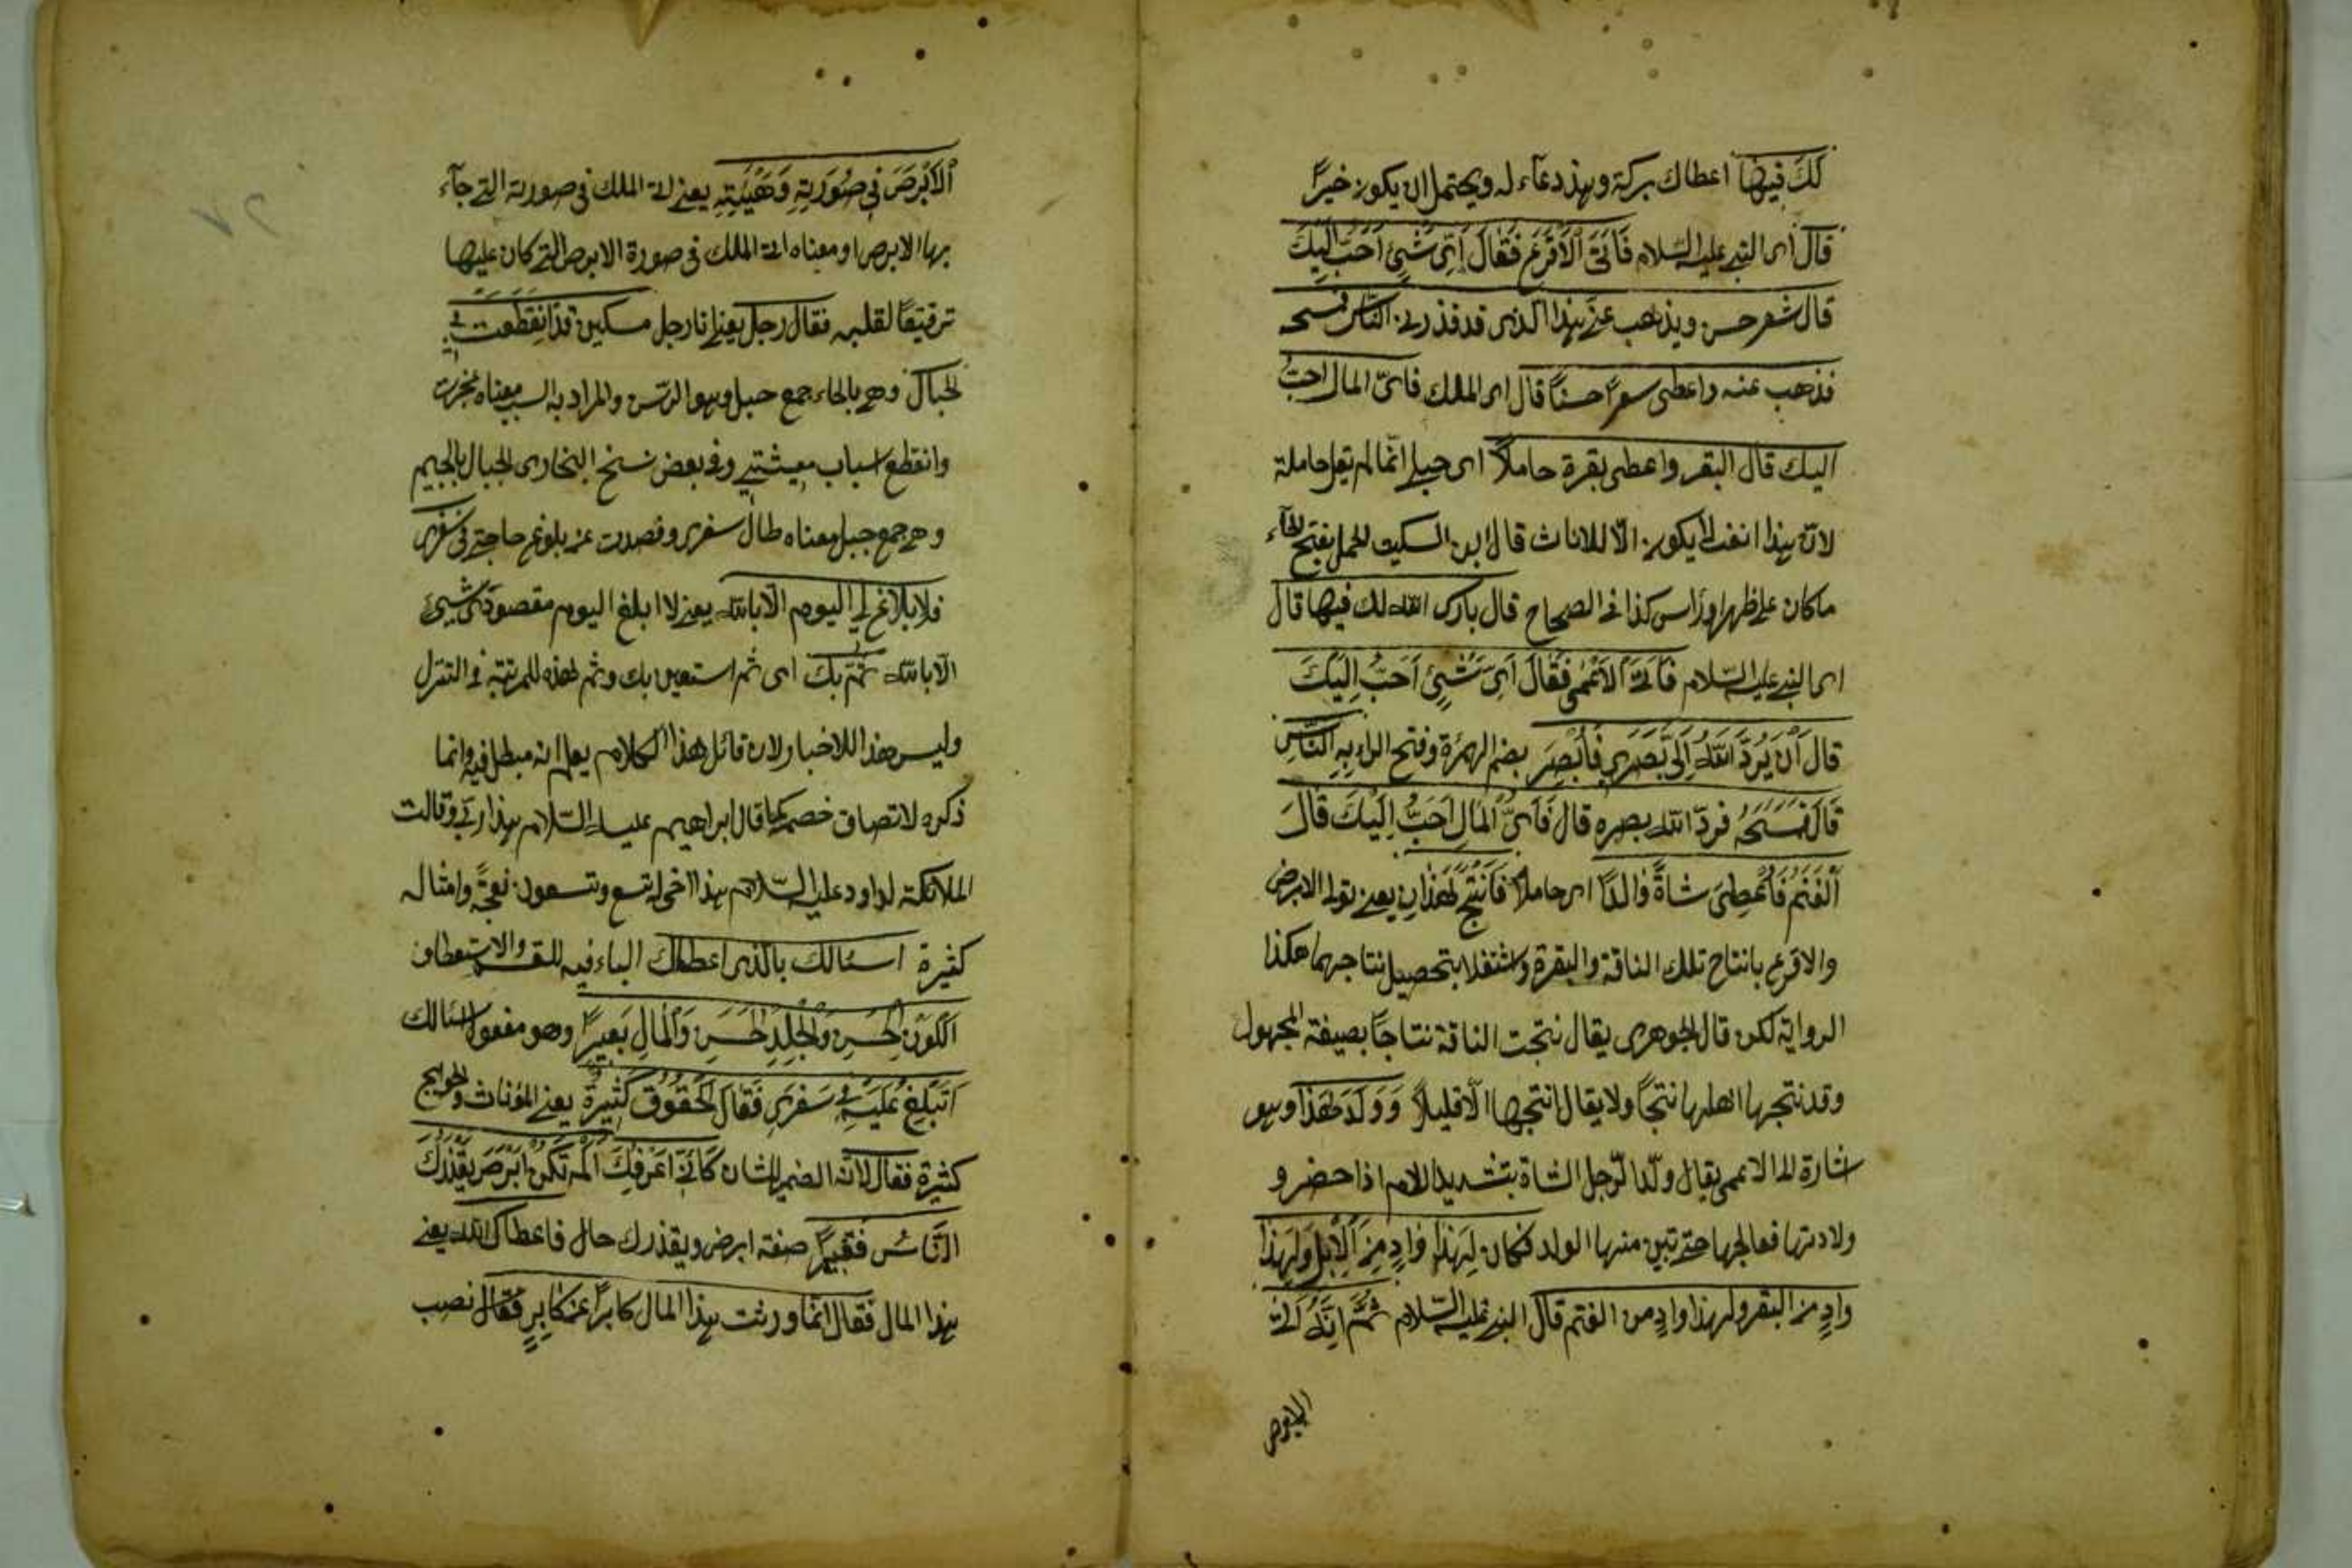 لَكَ فيها اعطاك بركة وهذ دعاء له ويحتمل ان يكون خيراً
قال اى النبى عليه السّلام فَاَتَى الْاَقْرَعَ فَقَالَ اَىُّ شَيْئٍ اَحَبُّ اِلَيْكَ
قال شعر حسن ويذهب عنّى هذا الذى قد قذرنى الناس فمسحه
فذهب عنه واعطى شعرًا حسناً قال اى الملك فاىّ المال احبّ
اليك قال البقر واعطى بقرة حاملاً اى حبلى انّما لم يقل حاملة
لانّ هذا النعت لا يكون الّا للاناث قال ابن السكيت الحمل بفتح الحاء
ما كان على ظهر او رأس كذا فى الصحاح قال بارك الله لك فيها قال
اى النبى عليه السّلام فَاَتَى الْاَعْمَى فَقَالَ اَىُّ شَيْئٍ اَحَبُّ اِلَيْكَ
قال اَنْ يَرُدَّ اللّٰهُ اِلَىَّ بَصَرِى فَاُبْصِرَ بضم الهمزة وفتح الراء بِهِ النَّاسَ
قَالَ فَمَسَحَهُ فردّ الله بصره قال فَاَىُّ الْمَالِ اَحَبُّ اِلَيْكَ قَالَ
اَلْغَنَمُ فَاُعْطِىَ شاةً وَالدًا اى حاملاً فَاَنْتَجَ هٰذَانِ يعنى تولى الابرص
والاقرع بانتاج تلك الناقة والبقرة واشتغلا بتحصيل نتاجهما هكذا
الرواية لكن قال الجوهرى يقال نتجت الناقة نتاجًا بصيغة المجهول
وقد نتجها اهلها نتجًا ولا يقال انتجها الّا قليلاً وَوَلَّدَ هٰذَا وهو
اشارة الى الاعمى يقال ولّد الرّجل الشاة بتشديد اللام اذا حضر و
ولادتها فعالجها حتى تبين منها الولد فكان لِهٰذَا وَادٍ مِنَ الْاِبِلِ وَلِهٰذَا
وادٍ من البقر ولهذا وادٍ من الغنم قال النبى عليه السّلام ثُمَّ اِنَّهُ اَتَى
الابرص
اَلْاَبْرَصَ فِى صُورَتِهِ وَهَيْئَتِهِ يعنى اتى الملك فى صورته التى جآء
بها الابرص او معناه اتى الملك فى صورة الابرص التى كان عليها
ترقيقًا لقلبه فقال رجل يعنى انا رجل مسكين قد انْقَطَعَتْ بِىَ
الحبال وهى بالحاء جمع حبل وهو الرسن والمراد به السبب معناه عجزت
وانقطع اسباب معيشتى وفى بعض نسخ البخارى الجبال بالجيم
وهى جمع جبل معناه طال سفرى وقصدت عن بلوغ حاجتى فى سَفَرِى
فلا بلاغ لى اليوم الّا بالله يعنى لا ابلغ اليوم مقصودى بشيئ
الّا بالله ثُمَّ بِكَ اى ثم استعين بك وثم هذه للمرتبة فى التنزل
وليس هذا للاخبار ولان قائل هذا الكلام يعلم انه مبطل فيه وانما
ذكره لاتصاف خصمه كما قال ابراهيم عليه السّلام هذا ربّى وقالت
الملائكة لداود عليه السّلام هذا اخى له تسع وتسعون نعجةً وامثاله
كثيرة اسئالك بالّذى اعطاك الباء فيه للقسم والاستعطاف
اللَّوْنَ الْحَسَنَ وَالْجِلْدَ الْحَسَنَ وَالْمَالَ بَعِيرًا وهو مفعول اسئالك
اَتَبَلَّغُ عَلَيْهِ فِى سَفَرِى فَقَالَ الْحُقُوقُ كَثِيرَةٌ يعنى المؤناث والحوايج
كثيرة فقال لانّه الضمير للشان كَاَنِّى اَعْرِفُكَ اَلَمْ تَكُنْ اَبْرَصَ يَقْذَرُكَ
النَّاسُ فَقِيرًا صفة ابرص ويقذرك حال فاعطاك الله يعنى
هذا المال فقال انّما ورثت هذا المال كابراً عن كَابِرٍ فقال نصب